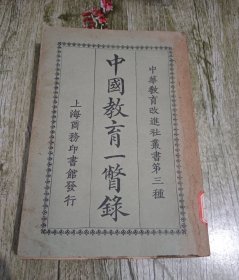 中華教育改進社叢書第三種
中國教育一瞥錄
上海商務印書館發行